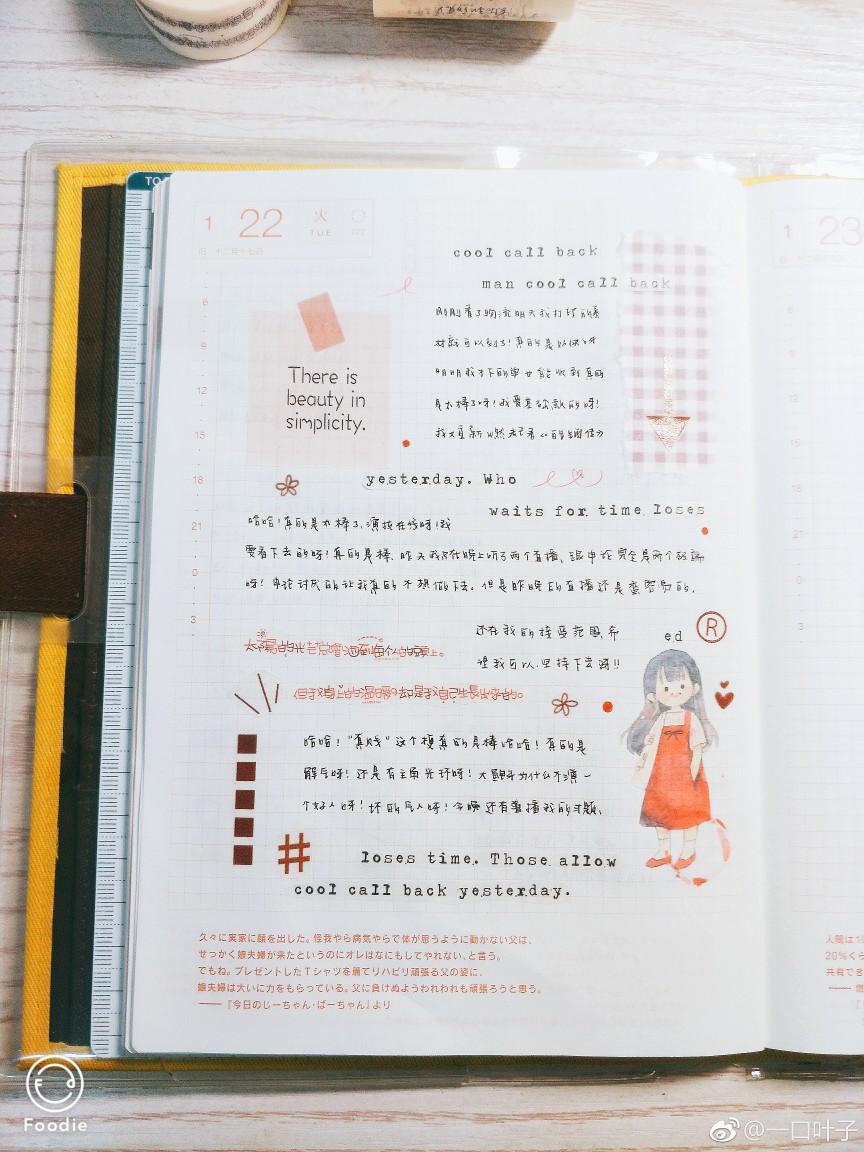 TO
1 22 火 TUE
旧 十二月十七日
1 23
cool call back
man cool call back
刚刚看了物流明天我打球的
就可以到了!真的是好快呀
明明我才下的单也能收到真的
是太棒了呀!我要喜欢的呀!
我又重新
There is
beauty in
simplicity.
6
9
12
15
18
21
0
3
yesterday. Who
waits for time loses
哈哈!真的是太棒了,演技在线呀!我
要看下去的呀!真的是棒、昨天我只在晚上听了两个直播、说申论完全是两个极端
呀!申论讨厌的让我真的不想做下去。但是昨晚的直播还是蛮容易的,
还在我的接受范围希
望我可以坚持下去嗯!!
ed
R
太陽的光
但我身上的溫暖却是我自己生長出來的。
哈哈!“真贱”这个梗真的是棒哈哈!真的是
解气呀!还是有主角光环呀!大 为什么不演一
个好人呀!坏的气人呀!今晚还有直播我的
#
loses time. Those allow
cool call back yesterday.
久々に実家に顔を出した。怪我やら病気やらで体が思うように動かない父は、
せっかく娘夫婦が来たというのにオレはなにもしてやれない、と言う。
でもね。プレゼントしたTシャツを着てリハビリ頑張る父の姿に、
娘夫婦は大いに力をもらっている。父に負けぬようわれわれも頑張ろうと思う。
——『今日のじーちゃん・ばーちゃん』より
人間は1
20%くら
共有でき
Foodie
@一口叶子